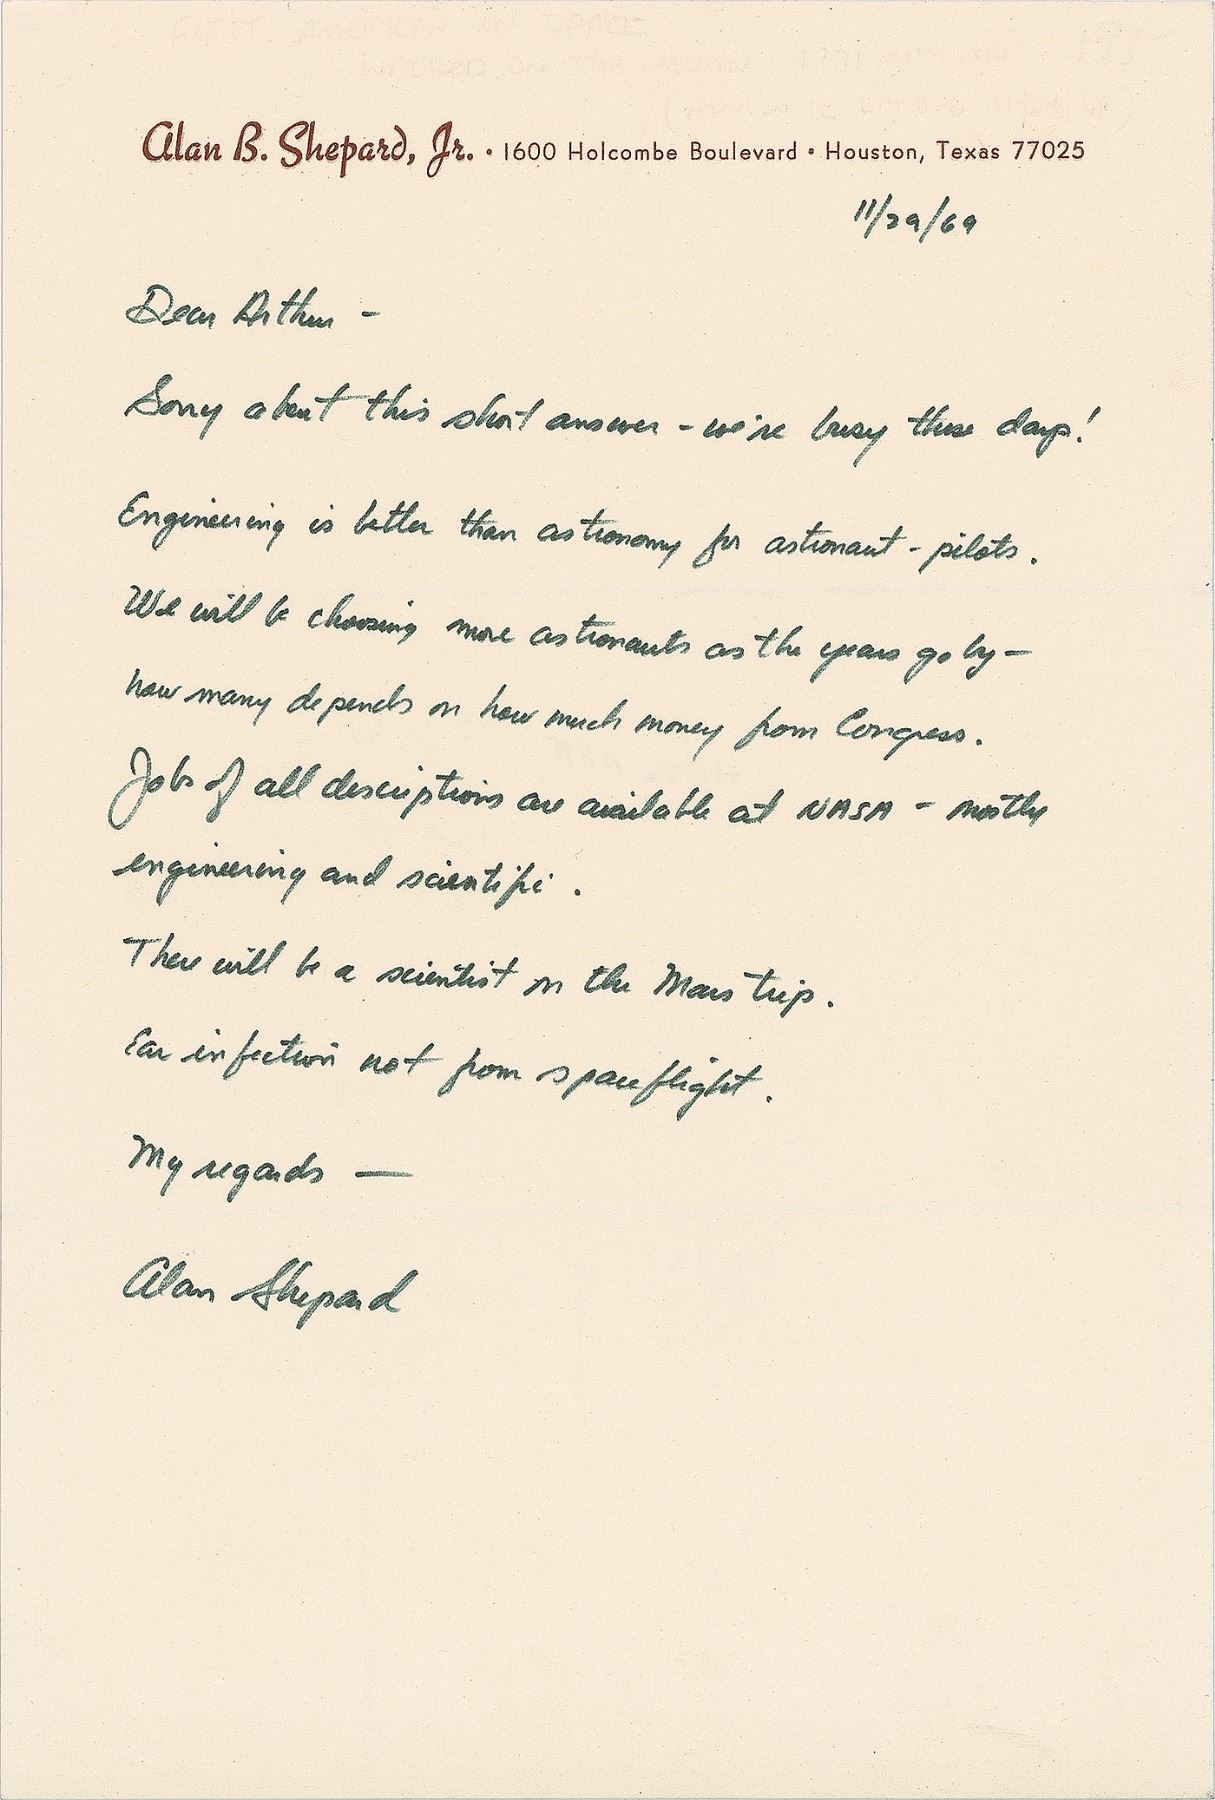 Alan B. Shepard, Jr. • 1600 Holcombe Boulevard • Houston, Texas 77025
11/29/69
Dear Arthur -
Sorry about this short answer - we're busy these days!
Engineering is better than astronomy for astronaut - pilots.
We will be choosing more astronauts as the years go by -
how many depends on how much money from Congress.
Jobs of all descriptions are available at NASA - mostly
engineering and scientific.
There will be a scientist on the Mars trip.
Ear infection not from spaceflight.
My regards —
Alan Shepard